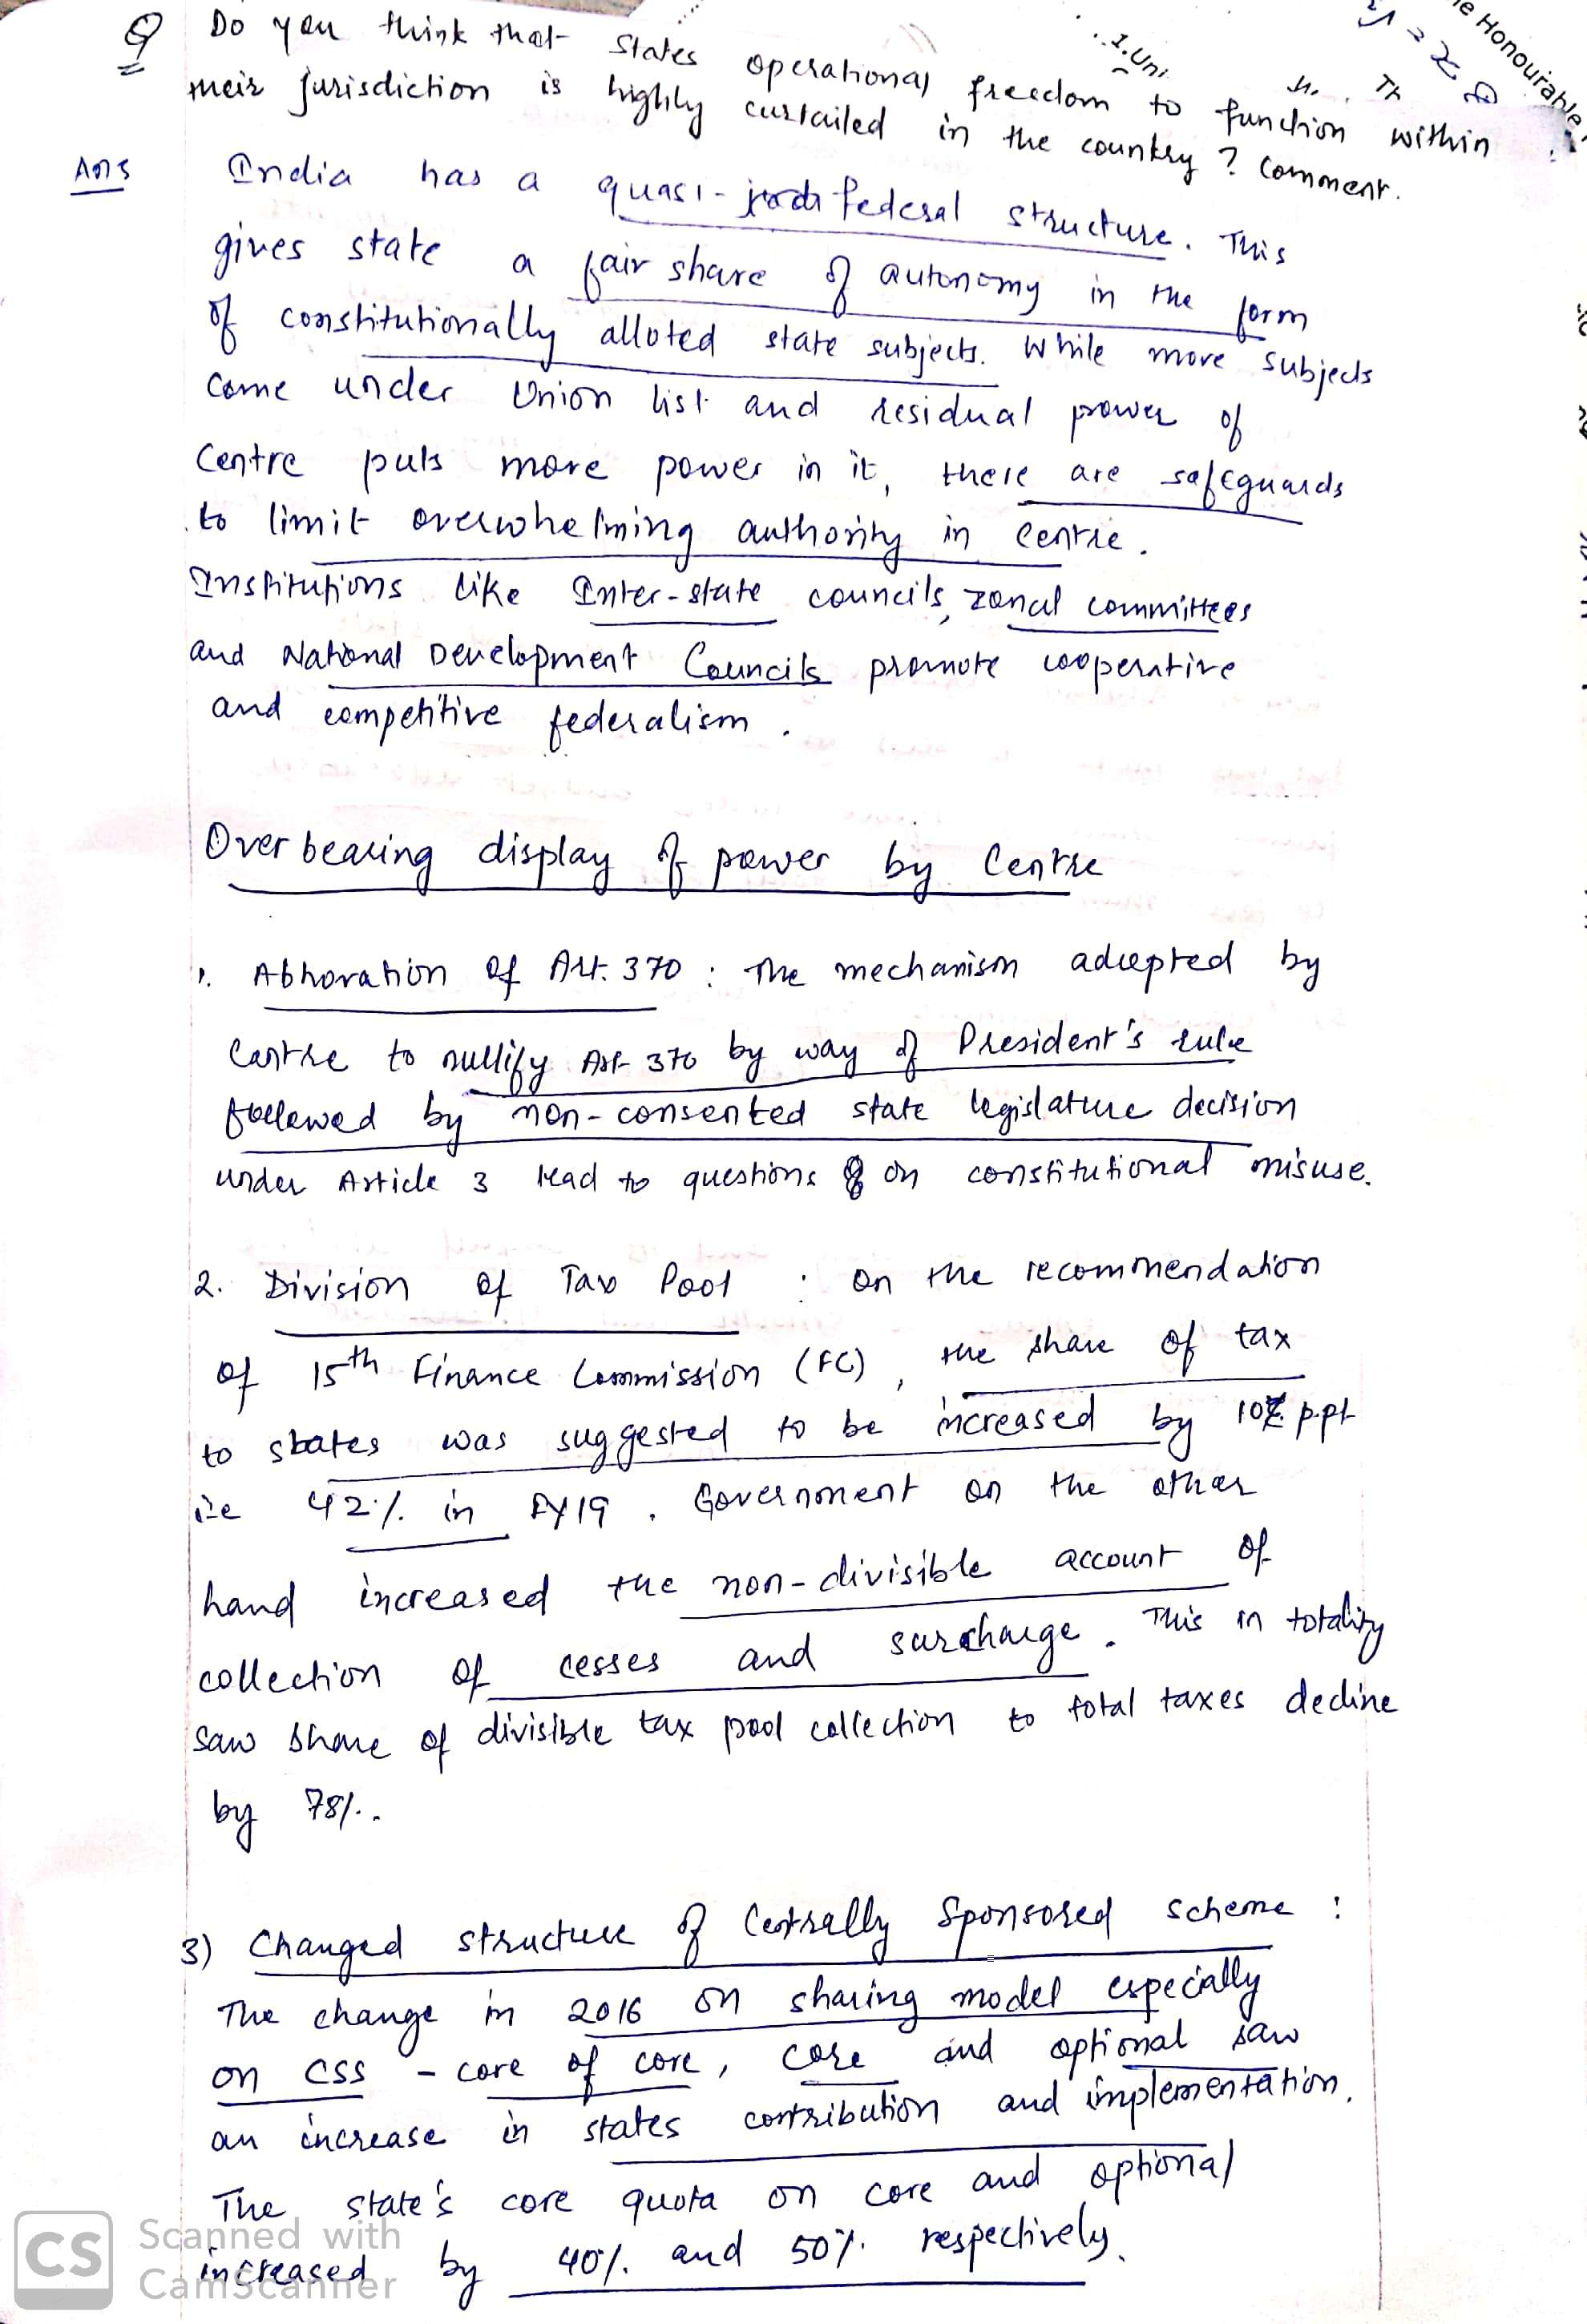 Q Do you think that States operational freedom to function within
their jurisdiction is highly curtailed in the country ? Comment.
Ans India has a quasi- federal structure. This
gives state a fair share of autonomy in the form
of constitutionally alloted state subjects. While more subjects
come under Union list and residual power of
Centre puts more power in it, there are safeguards
to limit overwhelming authority in Centre.
Institutions like Inter-state councils, zonal committees
and National Development Councils promote cooperative
and competitive federalism.
Over bearing display of power by Centre
1. Abhoration of Art. 370 : The mechanism adcepted by
Centre to nullify Art 370 by way of President's rule
followed by non-consented state legislature decision
under Article 3 lead to questions on constitutional misuse.
2. Division of Tax Pool : On the recommendation
of 15th Finance Commission (FC), the share of tax
to states was suggested to be increased by 10 p.pt
i.e 42% in FY19. Government on the other
hand increased the non-divisible account of
collection of cesses and surcharge. This in totality
saw share of divisible tax pool collection to total taxes decline
by 78%.
3) Changed structure of Centrally Sponsored scheme :
The change in 2016 on sharing model especially
on CSS - core of core, core and optional saw
an increase in states contribution and implementation.
The state's core quota on core and optional
increased by 40% and 50% respectively.
CS Scanned with
CamScanner
1.Uni
Th
e Honourable